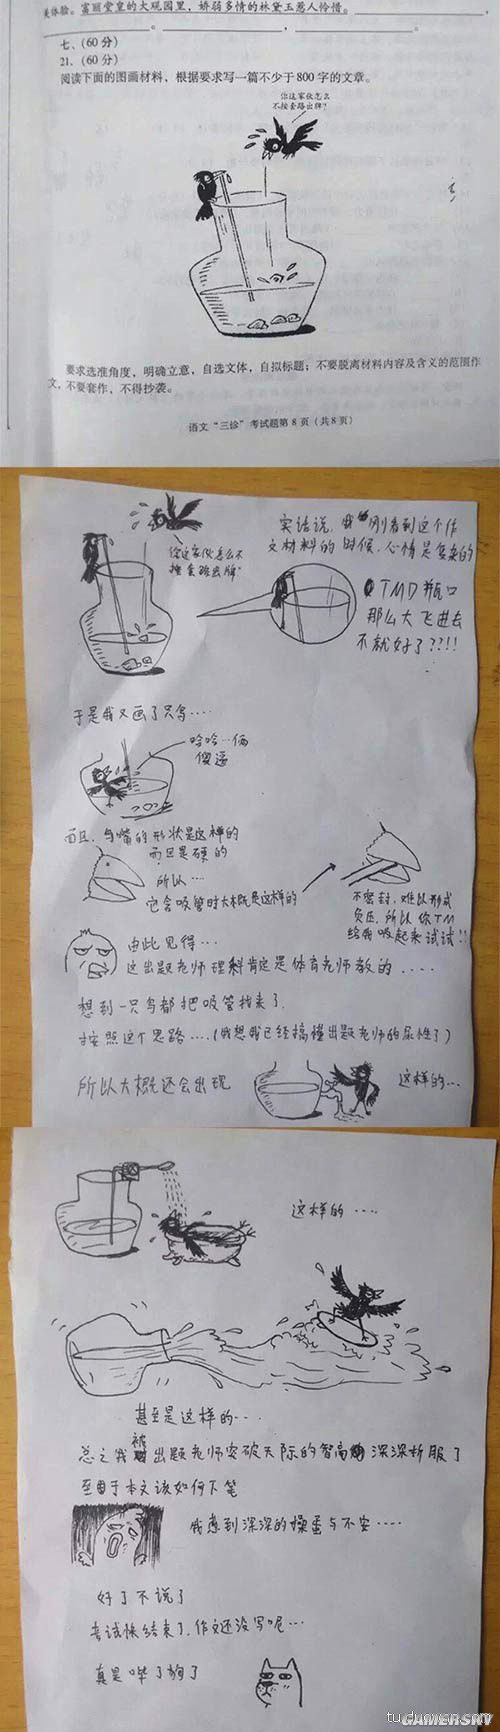 美体验。富丽堂皇的大观园里，娇弱多情的林黛玉惹人怜惜。
七、(60分)
21.(60分)
阅读下面的图画材料、根据要求写一篇不少于800字的文章。
你这家伙怎么
不按套路出牌?
要求选准角度，明确立意，自选文体，自拟标题；不要脱离材料内容及含义的范围作
文，不要套作，不得抄袭。
语文“三诊”考试题第8页(共8页)
你这家伙怎么不
按套路出牌"
实话说，我刚看到这个作
文材料的时候，心情是复杂的
TMD瓶口
那么大飞进去
不就好了???!!!
于是我又画了只鸟····
哈哈··俩
傻逼
而且，鸟嘴的形状是这样的
而且是硬的
所以···
它含吸管时大概是这样的
不密封，难以形成
负压，所以你TM
给我吸起来试试!!
由此见得···
这出题老师理科肯定是体育老师教的····
想到一只鸟都把吸管找来了.
按照这个思路····(我想我已经搞懂出题老师的尿性了)
所以大概还会出现
这样的···
这样的····
甚至是这样的···
总之我被出题老师突破天际的智商深深折服了
至于本文该如何下笔
我感到深深的操蛋与不安····
好了不说了
考试快结束了，作文还没写呢···
真是哔了狗了
GAMERSKY